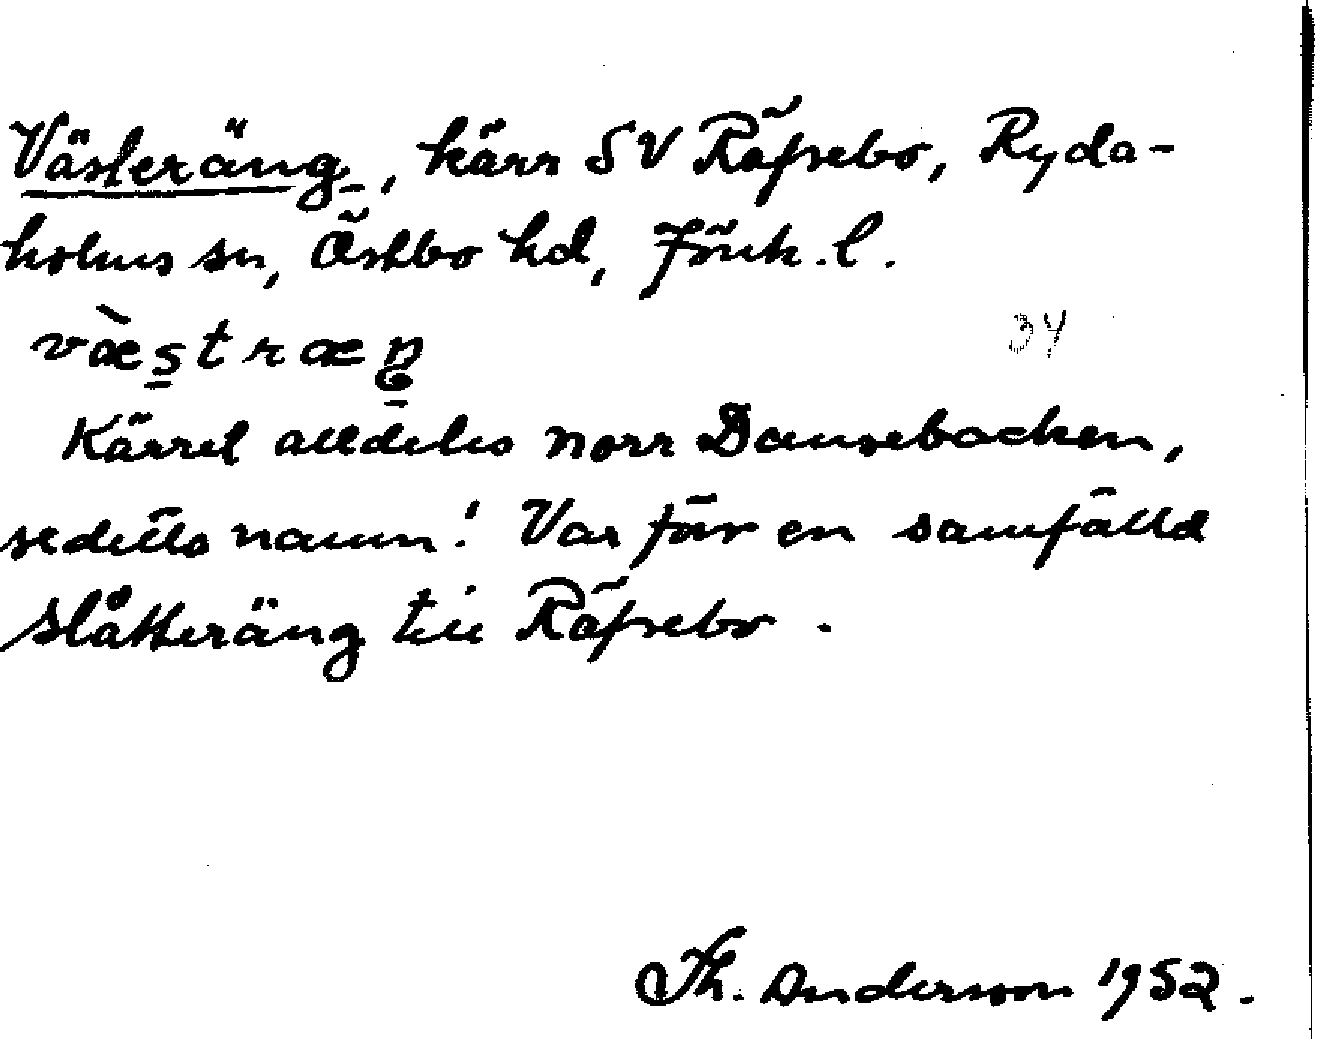 Västeräng, kärr SV Räfsebo, Ryda-
holms sn, Östbo hd, Jönk. l.
væ̀stræŋ
34
Kärret alldeles norr Dansebacken,
se detta namn! Var förr en samfälld
slåtteräng till Räfsebo.
Th. Anderson 1952.